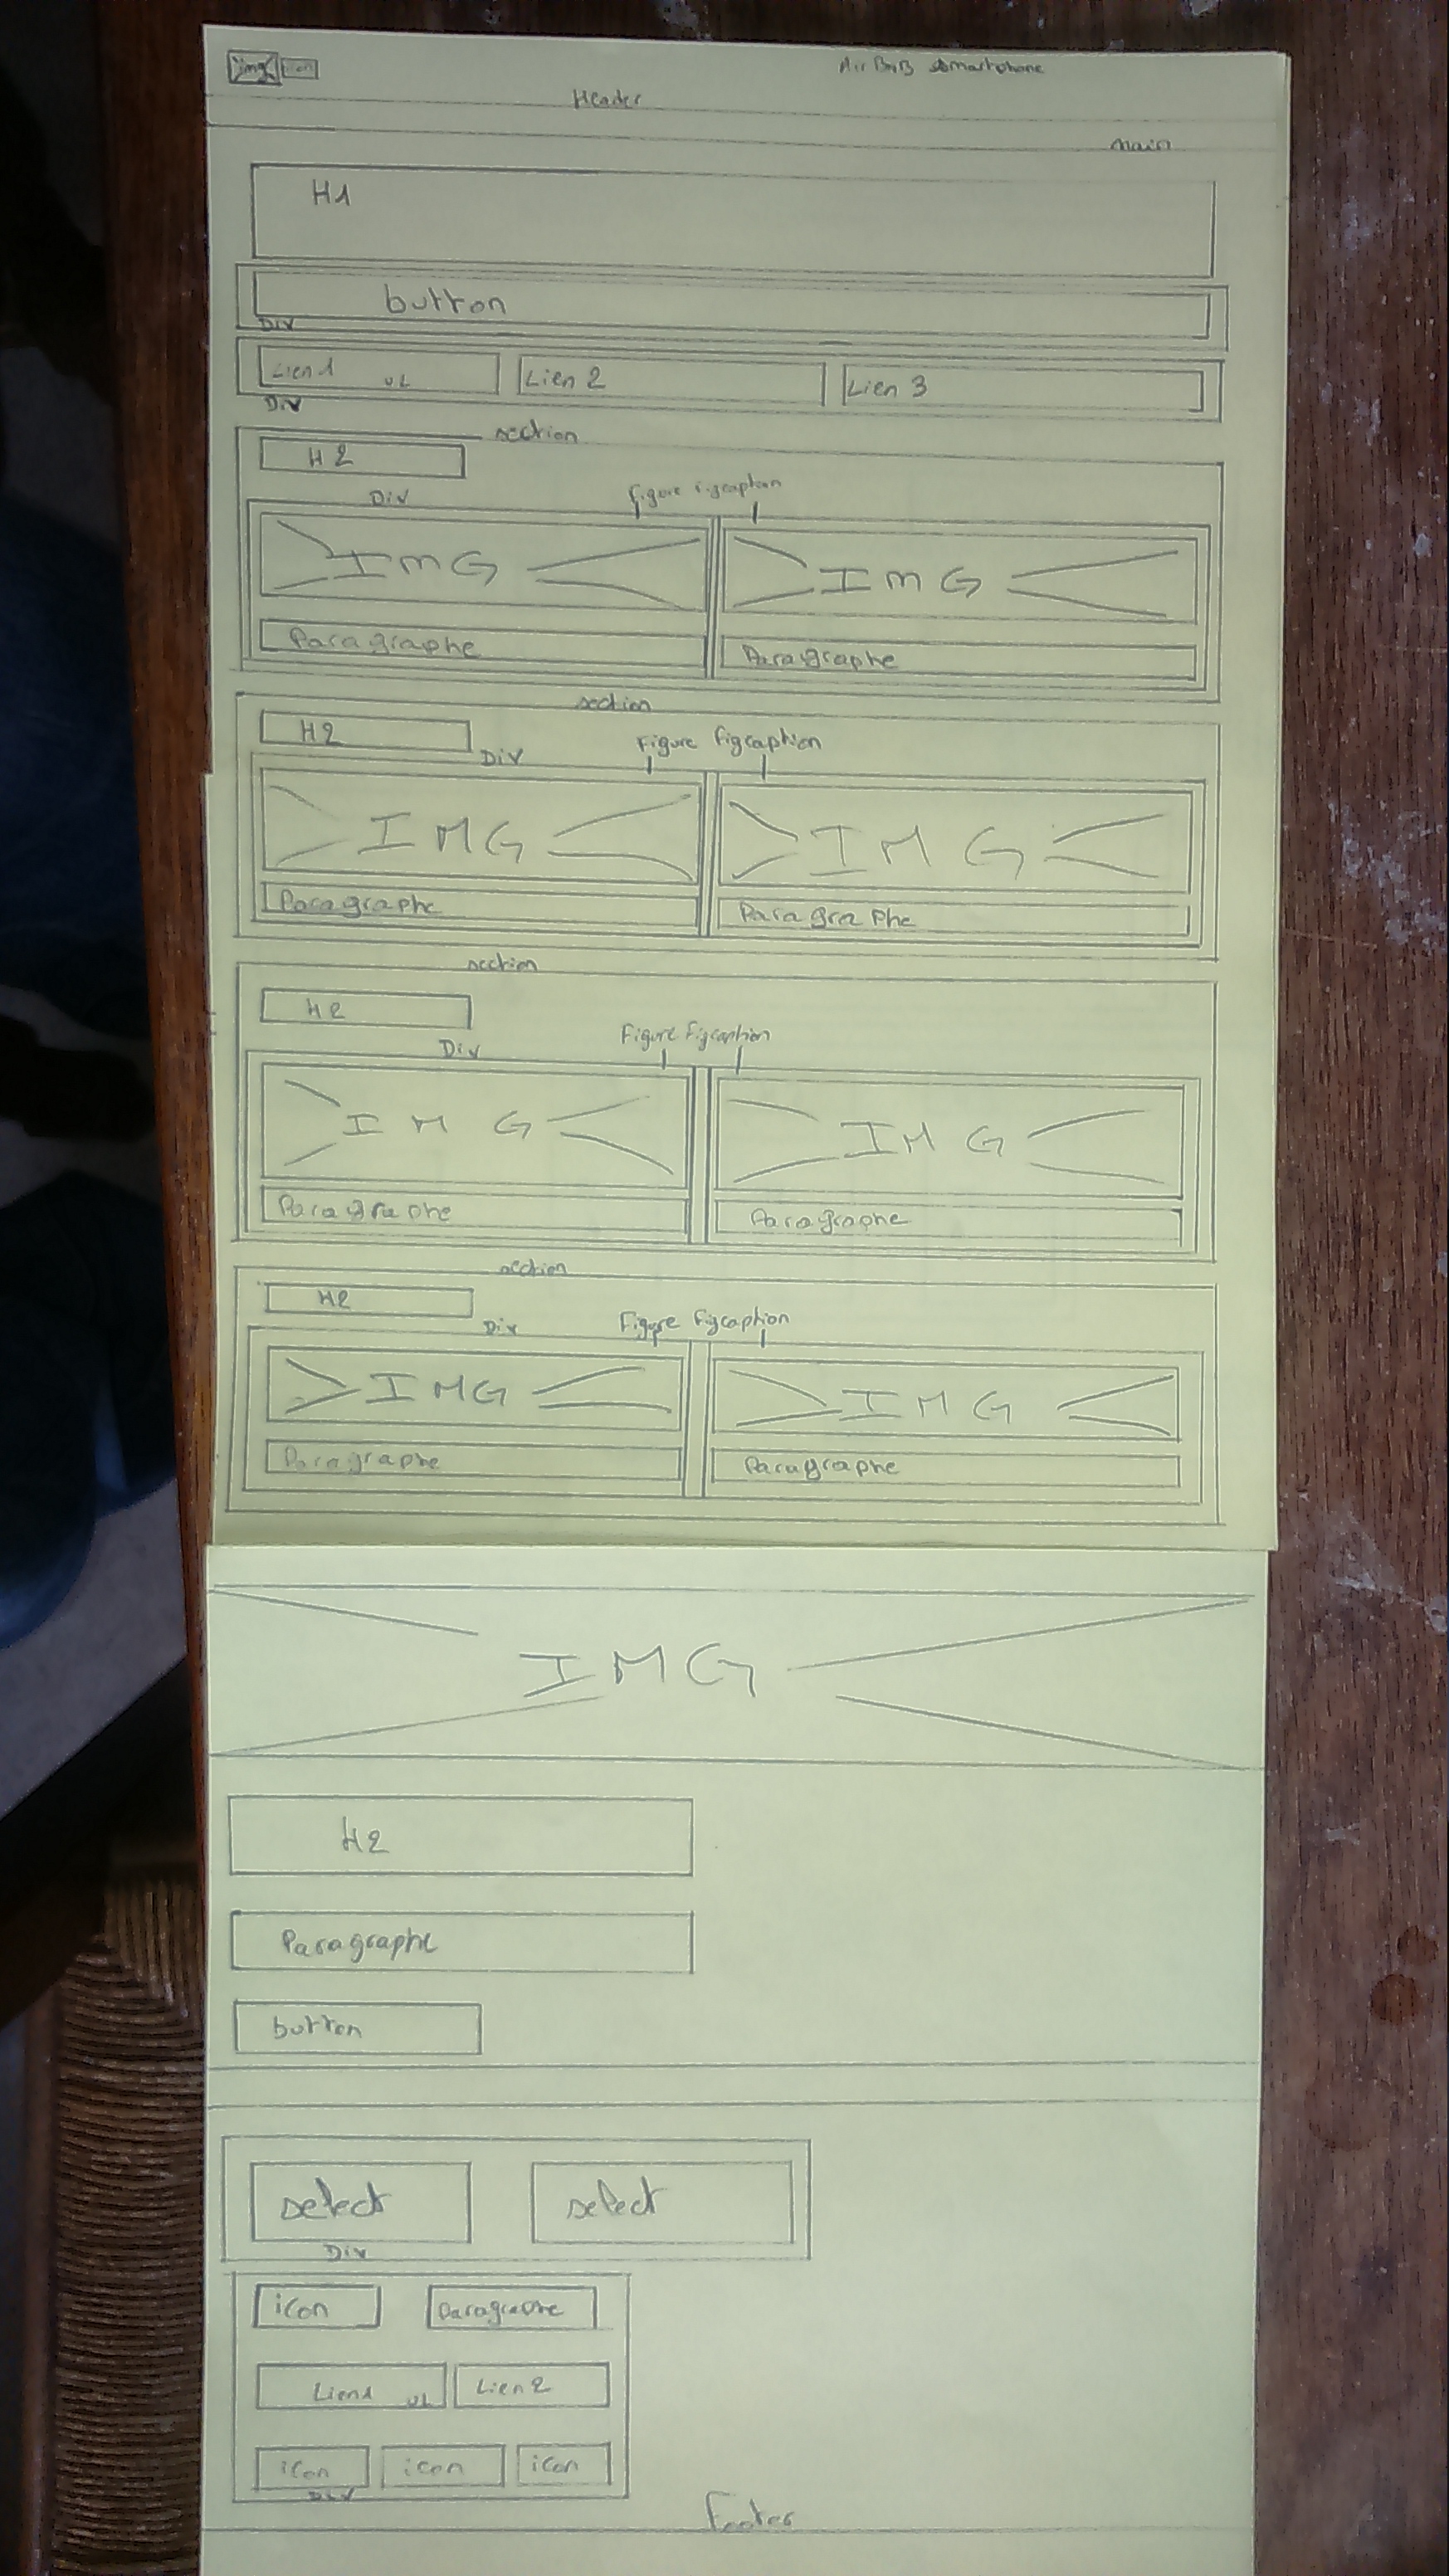 img icon AirBnB smartphone
Header
main
H1
button
Div
Lien 1 UL Lien 2 Lien 3
Div
section
H2
Div Figure figcaption
ImG ImG
Paragraphe Paragraphe
section
H2
Div Figure figcaption
IMG IMG
Paragraphe Paragraphe
section
H2
Div Figure Figcaption
IMG IMG
Paragraphe Paragraphe
section
H2
Div Figure Figcaption
IMG IMG
Paragraphe Paragraphe
IMG
H2
Paragraphe
button
select select
Div
icon Paragraphe
Lien1 UL Lien 2
icon icon icon
Div
Footer